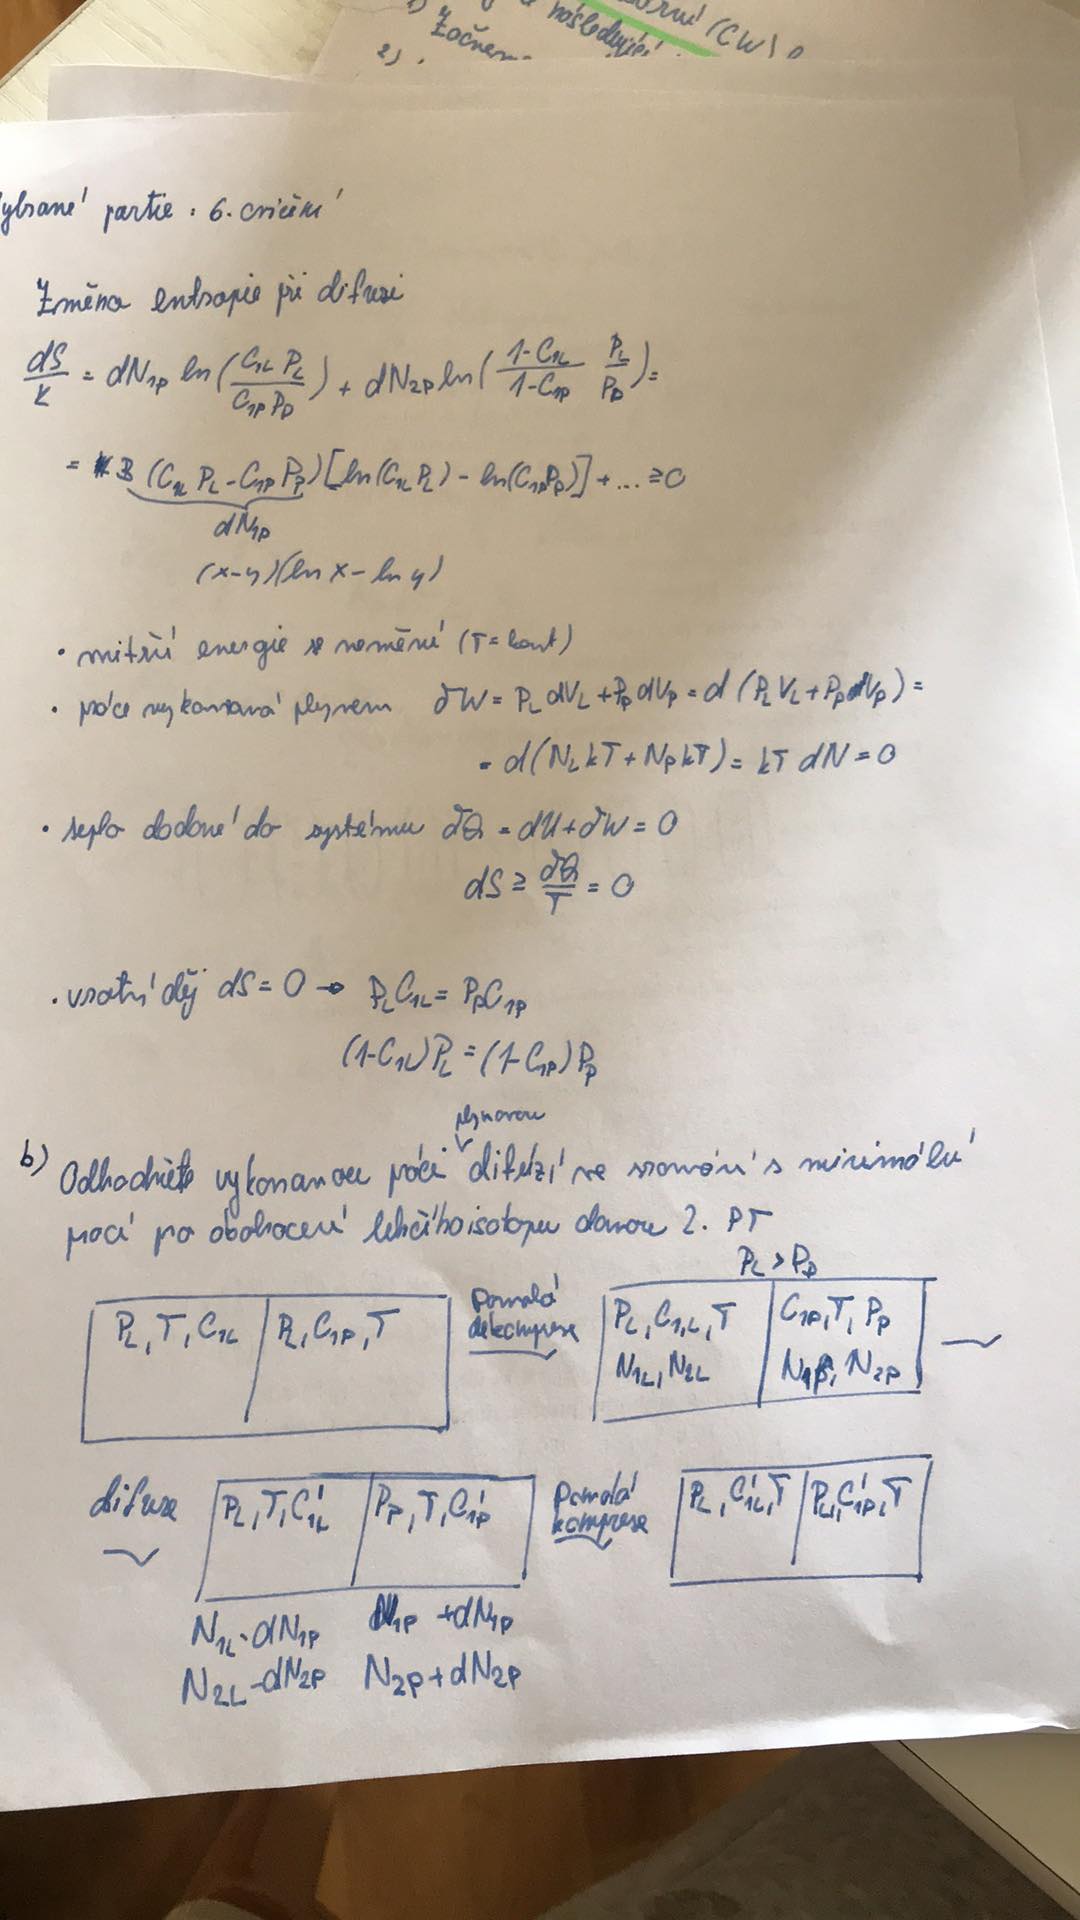 následující
(CW)
Začneme
2)
Vybrané partie : 6. cvičení
Změna entropie při difuzi
dS/k = dN₁P ln(C₁L PL / C₁P PP) + dN₂P ln((1-C₁L)/(1-C₁P) PL/PP) =
= B (C₁L PL - C₁P PP)[ln(C₁L PL) - ln(C₁P PP)] + ... ≥ 0
dN₁P
(x-y)(ln x - ln y)
• vnitřní energie se nemění (T = konst)
• práce vykonaná plynem δW = PL dVL + PP dVP = d(PL VL + PP VP) =
= d(NL kT + NP kT) = kT dN = 0
• teplo dodané do systému δQ = dU + δW = 0
dS ≥ δQ/T = 0
• vratný děj dS = 0 → PL C₁L = PP C₁P
(1-C₁L) PL = (1-C₁P) PP
plynovou
b) Odhadněte vykonanou práci difúzí ve srovnání s minimální
prací pro obohacení lehčího isotopu danou 2. PT
PL > PP
PL, T, C₁L
PL, C₁P, T
Pomalá
dekomprese
PL, C₁,L, T
C₁P, T, PP
N₁L, N₂L
N₁P, N₂P
difuze
PL, T, C₁'L
PP, T, C₁'P
Pomalá
komprese
PL, C₁'L, T
PL, C₁'P, T
N₁L - dN₁P
N₁P + dN₁P
N₂L - dN₂P
N₂P + dN₂P